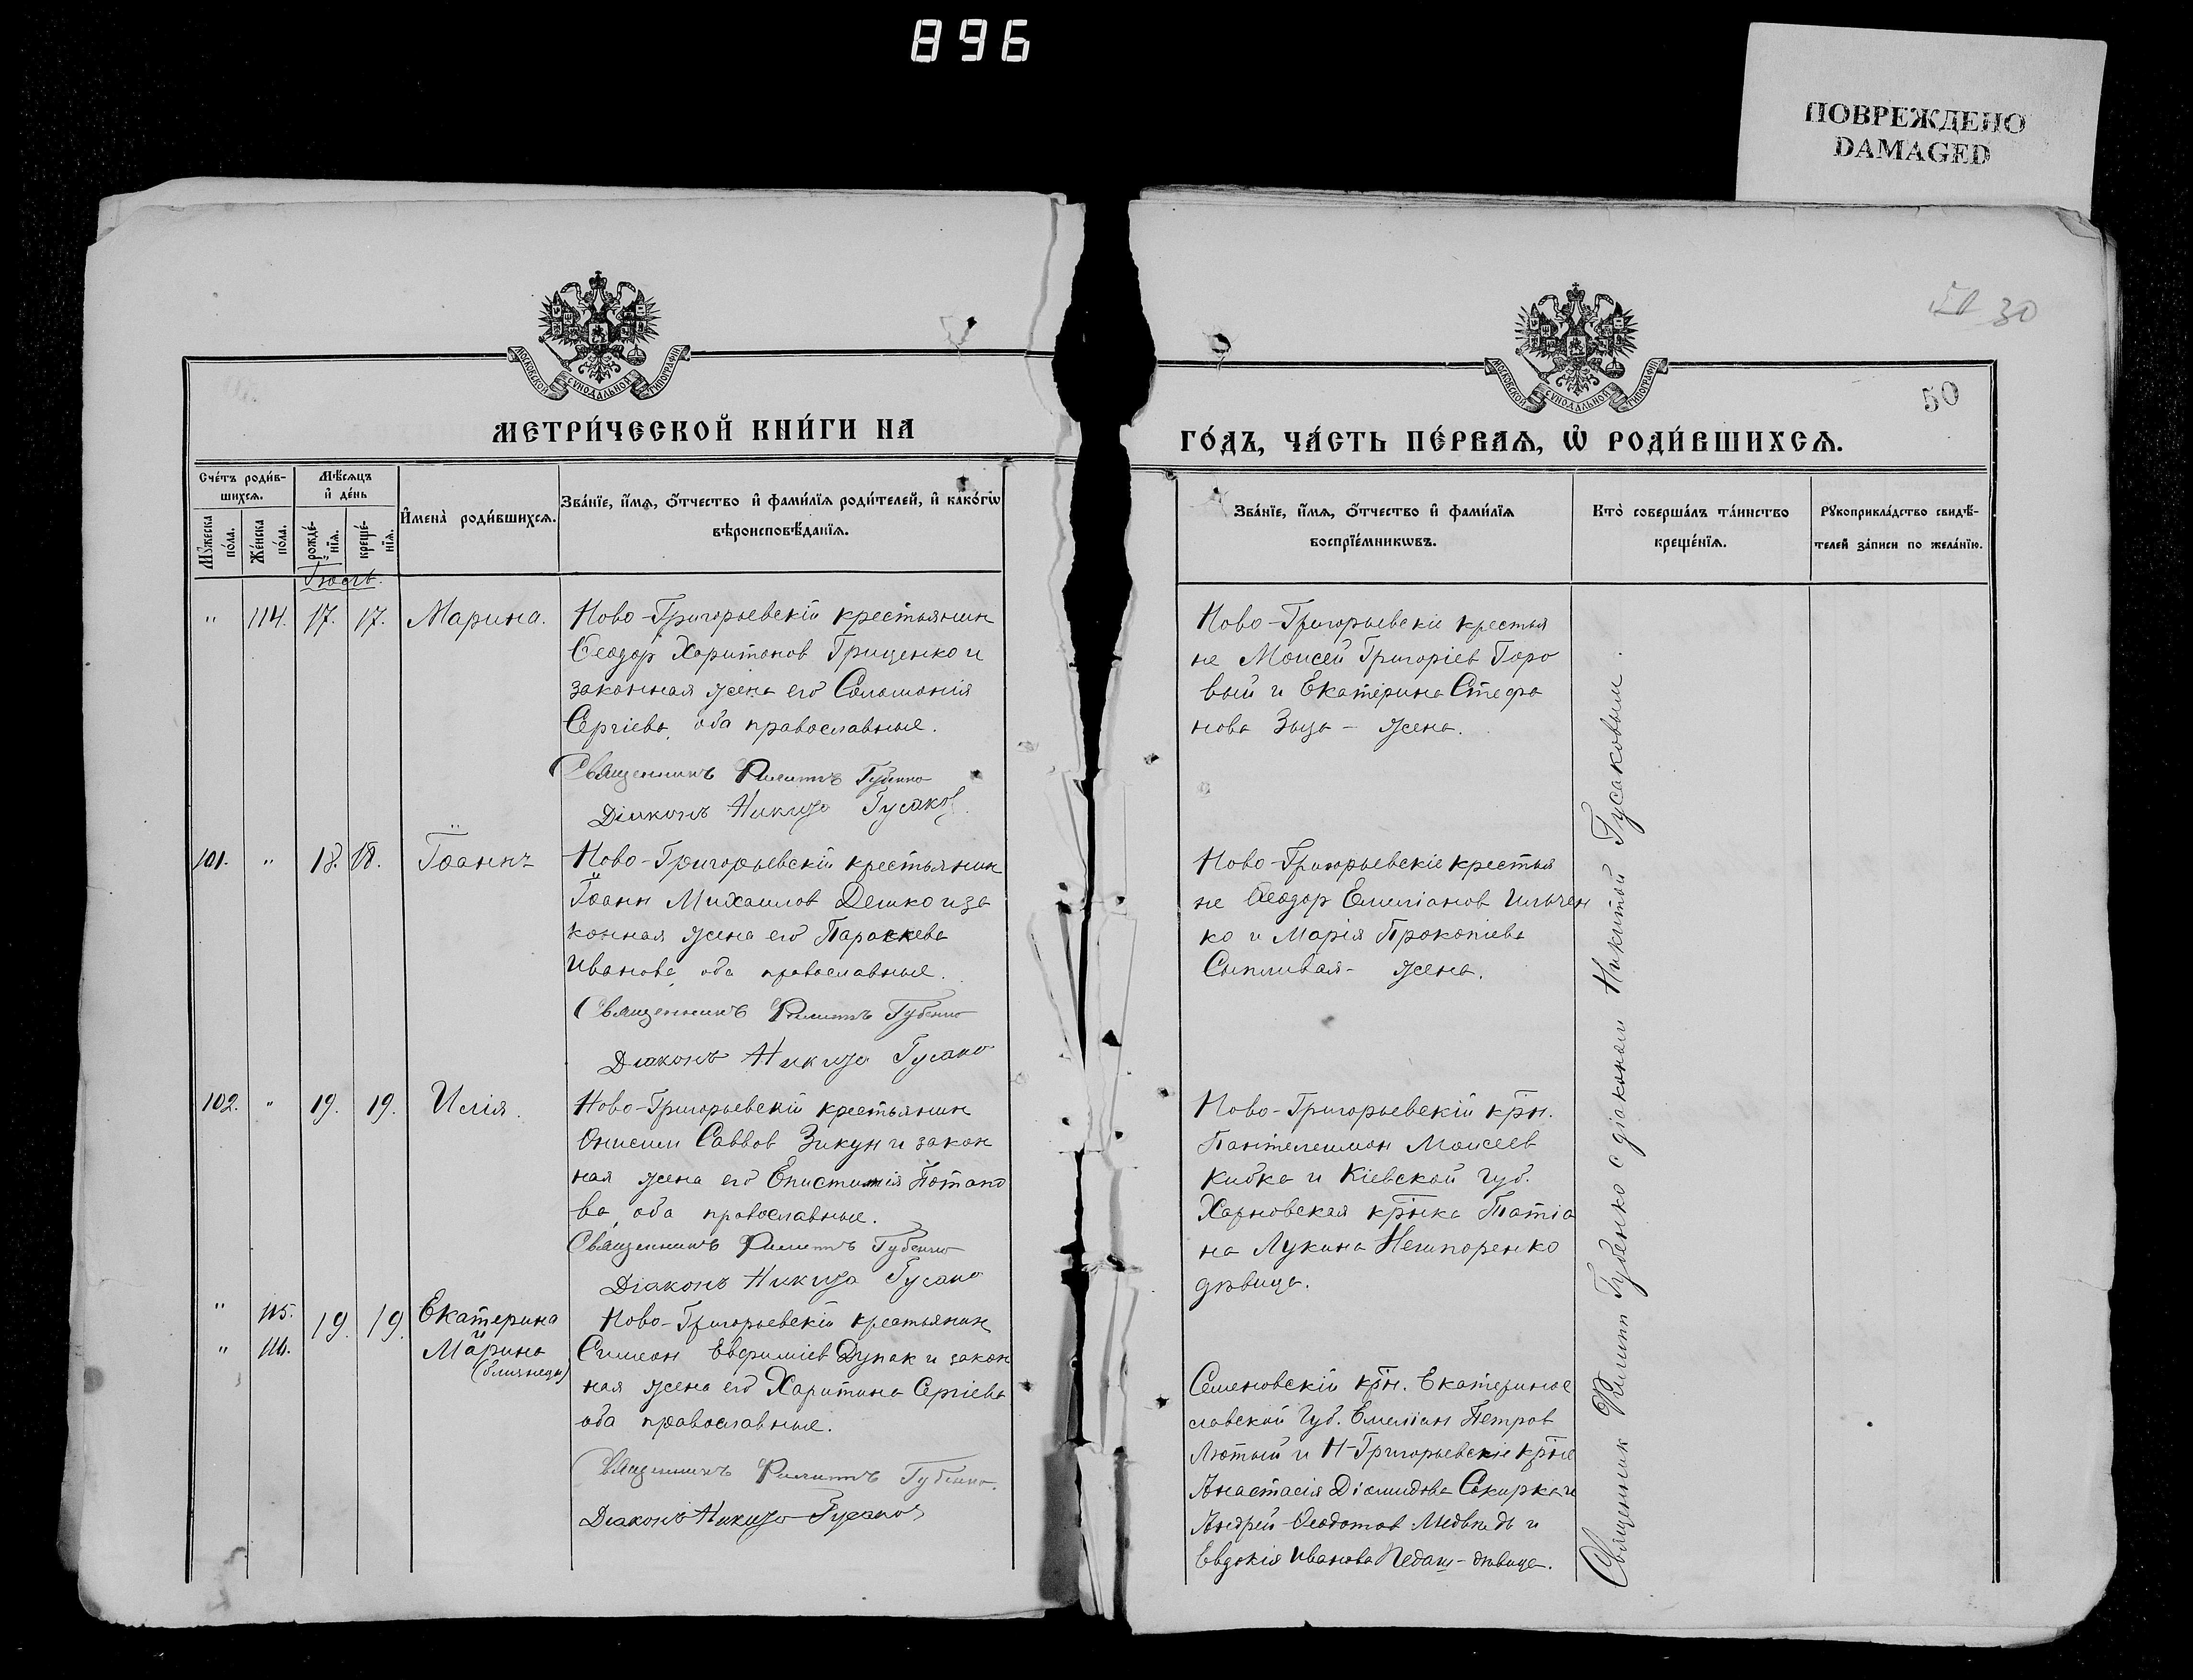 896
ПОВРЕЖДЕНО
DAMAGED
МОСКОВСКОЙ СѴНОДАЛЬНОЙ ТИПОГРАФІИ
МОСКОВСКОЙ СѴНОДАЛЬНОЙ ТИПОГРАФІИ
30
50
МЕТРИ́ЧЕСКОЙ КНИ́ГИ НА
ГО́ДЪ, ЧА́СТЬ ПЕ́РВАѦ, Ѡ҆ РОДИ́ВШИХСѦ.
Сче́тъ роди́в-
шихсѧ.
Мꙋ́жеска по́ла.
Же́нска по́ла.
Мѣ́сѧцъ
и҆ де́нь
рожде́-нїѧ.
креще́-нїѧ.
И҆мена̀ роди́вшихсѧ.
Зва́нїе, и҆́мѧ, ѻ҆́тчество и҆ фами́лїѧ роди́телей, и҆ како́гѡ
вѣроисповѣ́данїѧ.
Зва́нїе, и҆́мѧ, ѻ҆́тчество и҆ фами́лїѧ
воспрїе́мникѡвъ.
Кто̀ соверша́лъ та́инство
креще́нїѧ.
Рꙋкоприкла́дство свидѣ́-
телей за́писи по жела́нїю.
" 114. 17. 17. Марина.
Ново-Григорьевскій крестьянин
Ѳеодор Харитонов Гриценко и
законная жена его Соломонія
Сергіева, оба православные.
Священникъ Филиппъ Губенко
Діаконъ Никита Гусаков
Ново-Григорьевскіе крестья
не Моисей Григоріев Горо
вый и Екатерина Стефа
нова Зыза - жена.
101. " 18. 18. Іоаннъ
Ново-Григорьевскій крестьянин
Іоанн Михаилов Дешко и за
конная жена его Параскева
Иванова, оба православные.
Священникъ Филиппъ Губенко
Діаконъ Никита Гусако
Ново-Григорьевскіе крестья
не Ѳеодор Емиліанов Ильчен
ко и Марія Прокопіева
Сыпливая - жена.
102. " 19. 19. Илія.
Ново-Григорьевскій крестьянин
Онисим Саввов Зикун и закон
ная жена его Епистимія Потапо
ва, оба православные.
Священникъ Филиппъ Губенко
Діаконъ Никита Гусако
Ново-Григорьевскій крн.
Пантелеимон Моисеев
Кибка и Кіевской губ.
крнка Татіа
на Лукина Нешпоренко
дѣвица.
" 115. 19. 19. Екатерина
и
" 116. Марина
(близнецы)
Ново-Григорьевскій крестьянин
Симеон Евфиміев Дупак и закон
ная жена его Харитина Сергіева
оба православные.
Священникъ Филиппъ Губенко.
Діаконъ Никита Гусако
Семеновскій крн. Екатеринос
лавской губ. Емиліан Петров
Лютый и Н-Григорьевскіе крне
Анастасія Діомидова Сакирка и
Андрей Ѳеодотов Медвѣдь и
Евдокія Иванова Педаш - дѣвица.
Священник Филипп Губенко с діаконом Никитой Гусаковым.